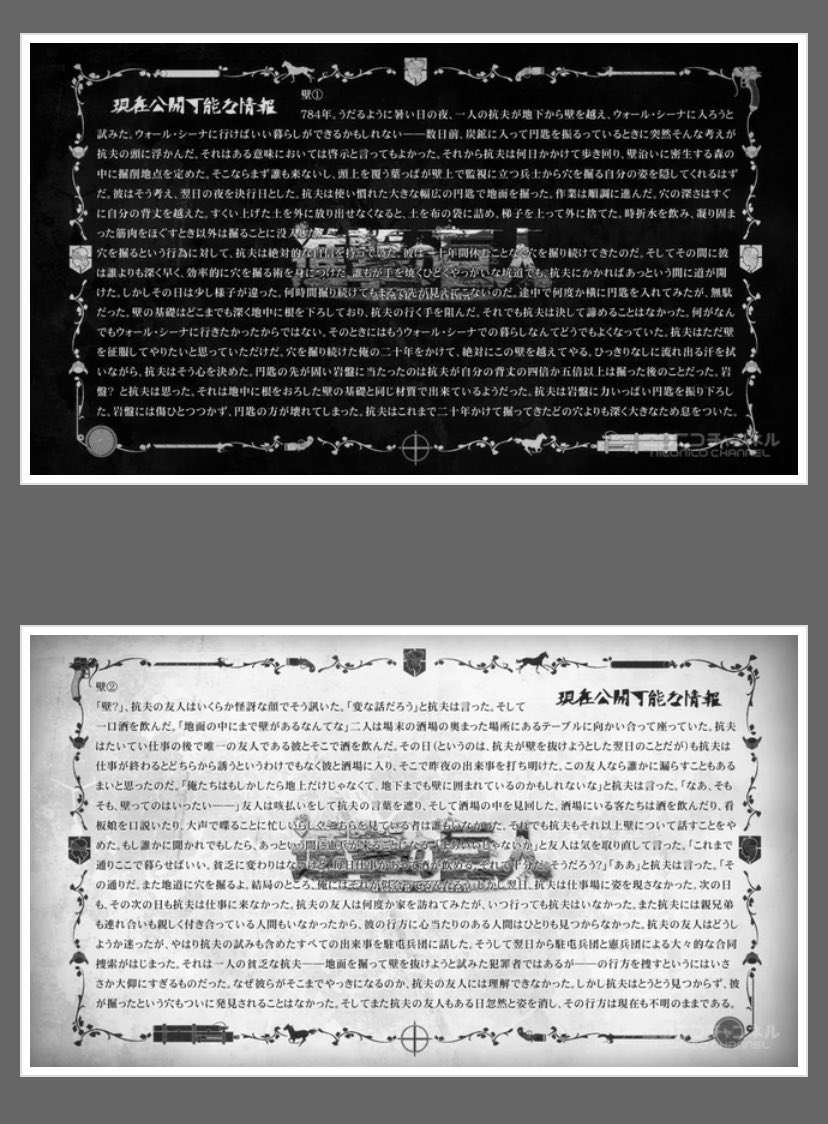 現在公開可能な情報
壁①
784年。うだるように暑い日の夜、一人の抗夫が地下から壁を越え、ウォール・シーナに入ろうと
試みた。ウォール・シーナに行けばいい暮らしができるかもしれない――数日前、炭鉱に入って円匙を振るっているときに突然そんな考えが
抗夫の頭に浮かんだ。それはある意味においては啓示と言ってもよかった。それから抗夫は何日かかけて歩き回り、壁沿いに密生する森の
中に掘削地点を定めた。そこならまず誰も来ないし、頭上を覆う葉っぱが壁上で監視に立つ兵士から穴を掘る自分の姿を隠してくれるはず
だ。彼はそう考え、翌日の夜を決行日とした。抗夫は使い慣れた大きな幅広の円匙で地面を掘った。作業は順調に進んだ。穴の深さはすぐ
に自分の背丈を越えた。すくい上げた土を外に放り出せなくなると、土を布の袋に詰め、梯子を上って外に捨てた。時折水を飲み、凝り固ま
った筋肉をほぐすとき以外は掘ることに没入した。
穴を掘るという行為に対して、抗夫は絶対的な自信を持っていた。彼は二十年間休むことなく穴を掘り続けてきたのだ。そしてその間に彼
は誰よりも深く早く、効率的に穴を掘る術を身につけた。誰もが手を焼くひどくやっかいな坑道でも、抗夫にかかればあっという間に道が開
けた。しかしその日は少し様子が違った。何時間掘り続けてもまるで先が見えてこないのだ。途中で何度か横に円匙を入れてみたが、無駄
だった。壁の基礎はどこまでも深く地中に根を下ろしており、抗夫の行く手を阻んだ。それでも抗夫は決して諦めることはなかった。何がなん
でもウォール・シーナに行きたかったからではない。そのときにはもうウォール・シーナでの暮らしなんてどうでもよくなっていた。抗夫はただ壁
を征服してやりたいと思っていただけだ。穴を掘り続けた俺の二十年をかけて、絶対にこの壁を越えてやる。ひっきりなしに流れ出る汗を拭
いながら、抗夫はそう心を決めた。円匙の先が固い岩盤に当たったのは抗夫が自分の背丈の四倍か五倍以上は掘った後のことだった。岩
盤? と抗夫は思った。それは地中に根をおろした壁の基礎と同じ材質で出来ているようだった。抗夫は岩盤に力いっぱい円匙を振り下ろし
た。岩盤には傷ひとつつかず、円匙の方が壊れてしまった。抗夫はこれまで二十年かけて掘ってきたどの穴よりも深く大きなため息をついた。
ニコニコチャンネル
NICONICO CHANNEL
壁②
現在公開可能な情報
「壁?」、抗夫の友人はいくらか怪訝な顔でそう訊いた。「変な話だろう」と抗夫は言った。そして
一口酒を飲んだ。「地面の中にまで壁があるなんてな」二人は場末の酒場の奥まった場所にあるテーブルに向かい合って座っていた。抗夫
はたいてい仕事の後で唯一の友人である彼とそこで酒を飲んだ。その日(というのは、抗夫が壁を抜けようとした翌日のことだが)も抗夫は
仕事が終わるとどちらから誘うというわけでもなく彼と酒場に入り、そこで昨夜の出来事を打ち明けた。この友人なら誰かに漏らすこともある
まいと思ったのだ。「俺たちはもしかしたら地上だけじゃなくて、地下までも壁に囲まれているのかもしれないな」と抗夫は言った。「なあ、そも
そも、壁ってのはいったい――」友人は咳払いをして抗夫の言葉を遮り、そして酒場の中を見回した。酒場にいる客たちは酒を飲んだり、看
板娘を口説いたり、大声で喋ることに忙しいらしく、こちらを見ている者は誰もいなかった。それでも抗夫もそれ以上壁について話すことをや
めた。もし誰かに聞かれでもしたら、あっという間に憲兵が来ることになる。「まあいいじゃないか」と友人は気を取り直して言った。「これまで
通りここで暮らせばいい。貧乏に変わりはないけど、毎日仕事があって酒が飲める。それで十分だ。そうだろう?」「ああ」と抗夫は言った。「そ
の通りだ。また地道に穴を掘るよ。結局のところ、俺にはそれが似合ってるんだろう」しかし翌日、抗夫は仕事場に姿を現さなかった。次の日
も、その次の日も抗夫は仕事に来なかった。抗夫の友人は何度か家を訪ねてみたが、いつ行っても抗夫はいなかった。また抗夫には親兄弟
も連れ合いも親しく付き合っている人間もいなかったから、彼の行方に心当たりのある人間はひとりも見つからなかった。抗夫の友人はどうし
ようか迷ったが、やはり抗夫の試みも含めたすべての出来事を駐屯兵団に話した。そうして翌日から駐屯兵団と憲兵団による大々的な合同
捜索がはじまった。それは一人の貧乏な抗夫――地面を掘って壁を抜けようと試みた犯罪者ではあるが――の行方を捜すというにはいさ
さか大仰にすぎるものだった。なぜ彼らがそこまでやっきになるのか、抗夫の友人には理解できなかった。しかし抗夫はとうとう見つからず、彼
が掘ったという穴もついに発見されることはなかった。そしてまた抗夫の友人もある日忽然と姿を消し、その行方は現在も不明のままである。